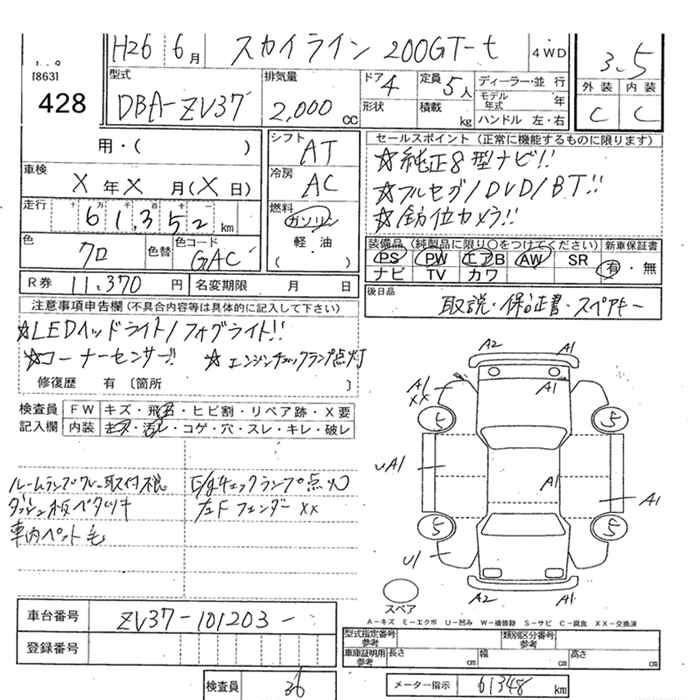 H26 6月 スカイライン 200GT-t 4WD 3.5
[863]
428
型式 DBA-ZV37 排気量 2,000 cc ドア 4 形状 定員 5人 積載 kg ディーラー・並行 モデル年式 年 ハンドル 左・右 外装 C 内装 C
用・( )
車検 X 年 X 月 (X 日)
走行 十 万 千 百 十 61,352 km
色 クロ 色替 色コード GAC
シフト AT
冷房 AC
燃料 ガソリン 軽油 ( )
セールスポイント (正常に機能するものに限る)
☆純正8型ナビ!!
☆フルセグ/DVD/BT!!
☆全方位カメラ!!
装備品 (純製品に限り○をつけてください) 新車保証書
PS PW エアB AW SR 有・無
ナビ TV カワ
R券 11,370 円 名変期限 月 日
後日品 取説・保証書・スペアキー
注意事項申告欄 (不具合内容等は具体的に記入して下さい)
☆LEDヘッドライト/フォグライト!!
☆コーナーセンサー!! ☆エンジンチェックランプ点灯
修復歴 有 〔箇所 〕
検査員記入欄 FW キズ・飛石・ヒビ割・リペア跡・X要
内装 キズ・汚レ・コゲ・穴・スレ・キレ・破レ
ルームランプカバー取付不良 E/gチェックランプ点灯
ダッシュ板ベタツキ 左Fフェンダーxx
車内ペット毛
A2 A1
A1 xx A1
5 5
UA1 A1 A1
5 5
U1
A2 A1
スペア
A－キズ E－エクボ U－凹み W－補修跡 S－サビ C－腐食 XX－交換済
車台番号 ZV37-101203-
登録番号
型式指定番号参考 類別区分番号参考
車庫証明用参考 長さ cm 幅 cm 高さ cm
検査員 36 メーター指示 61348 km